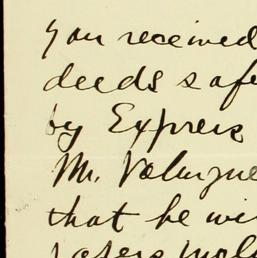 you received
deeds safe
by Express
Mr. 
that he wi